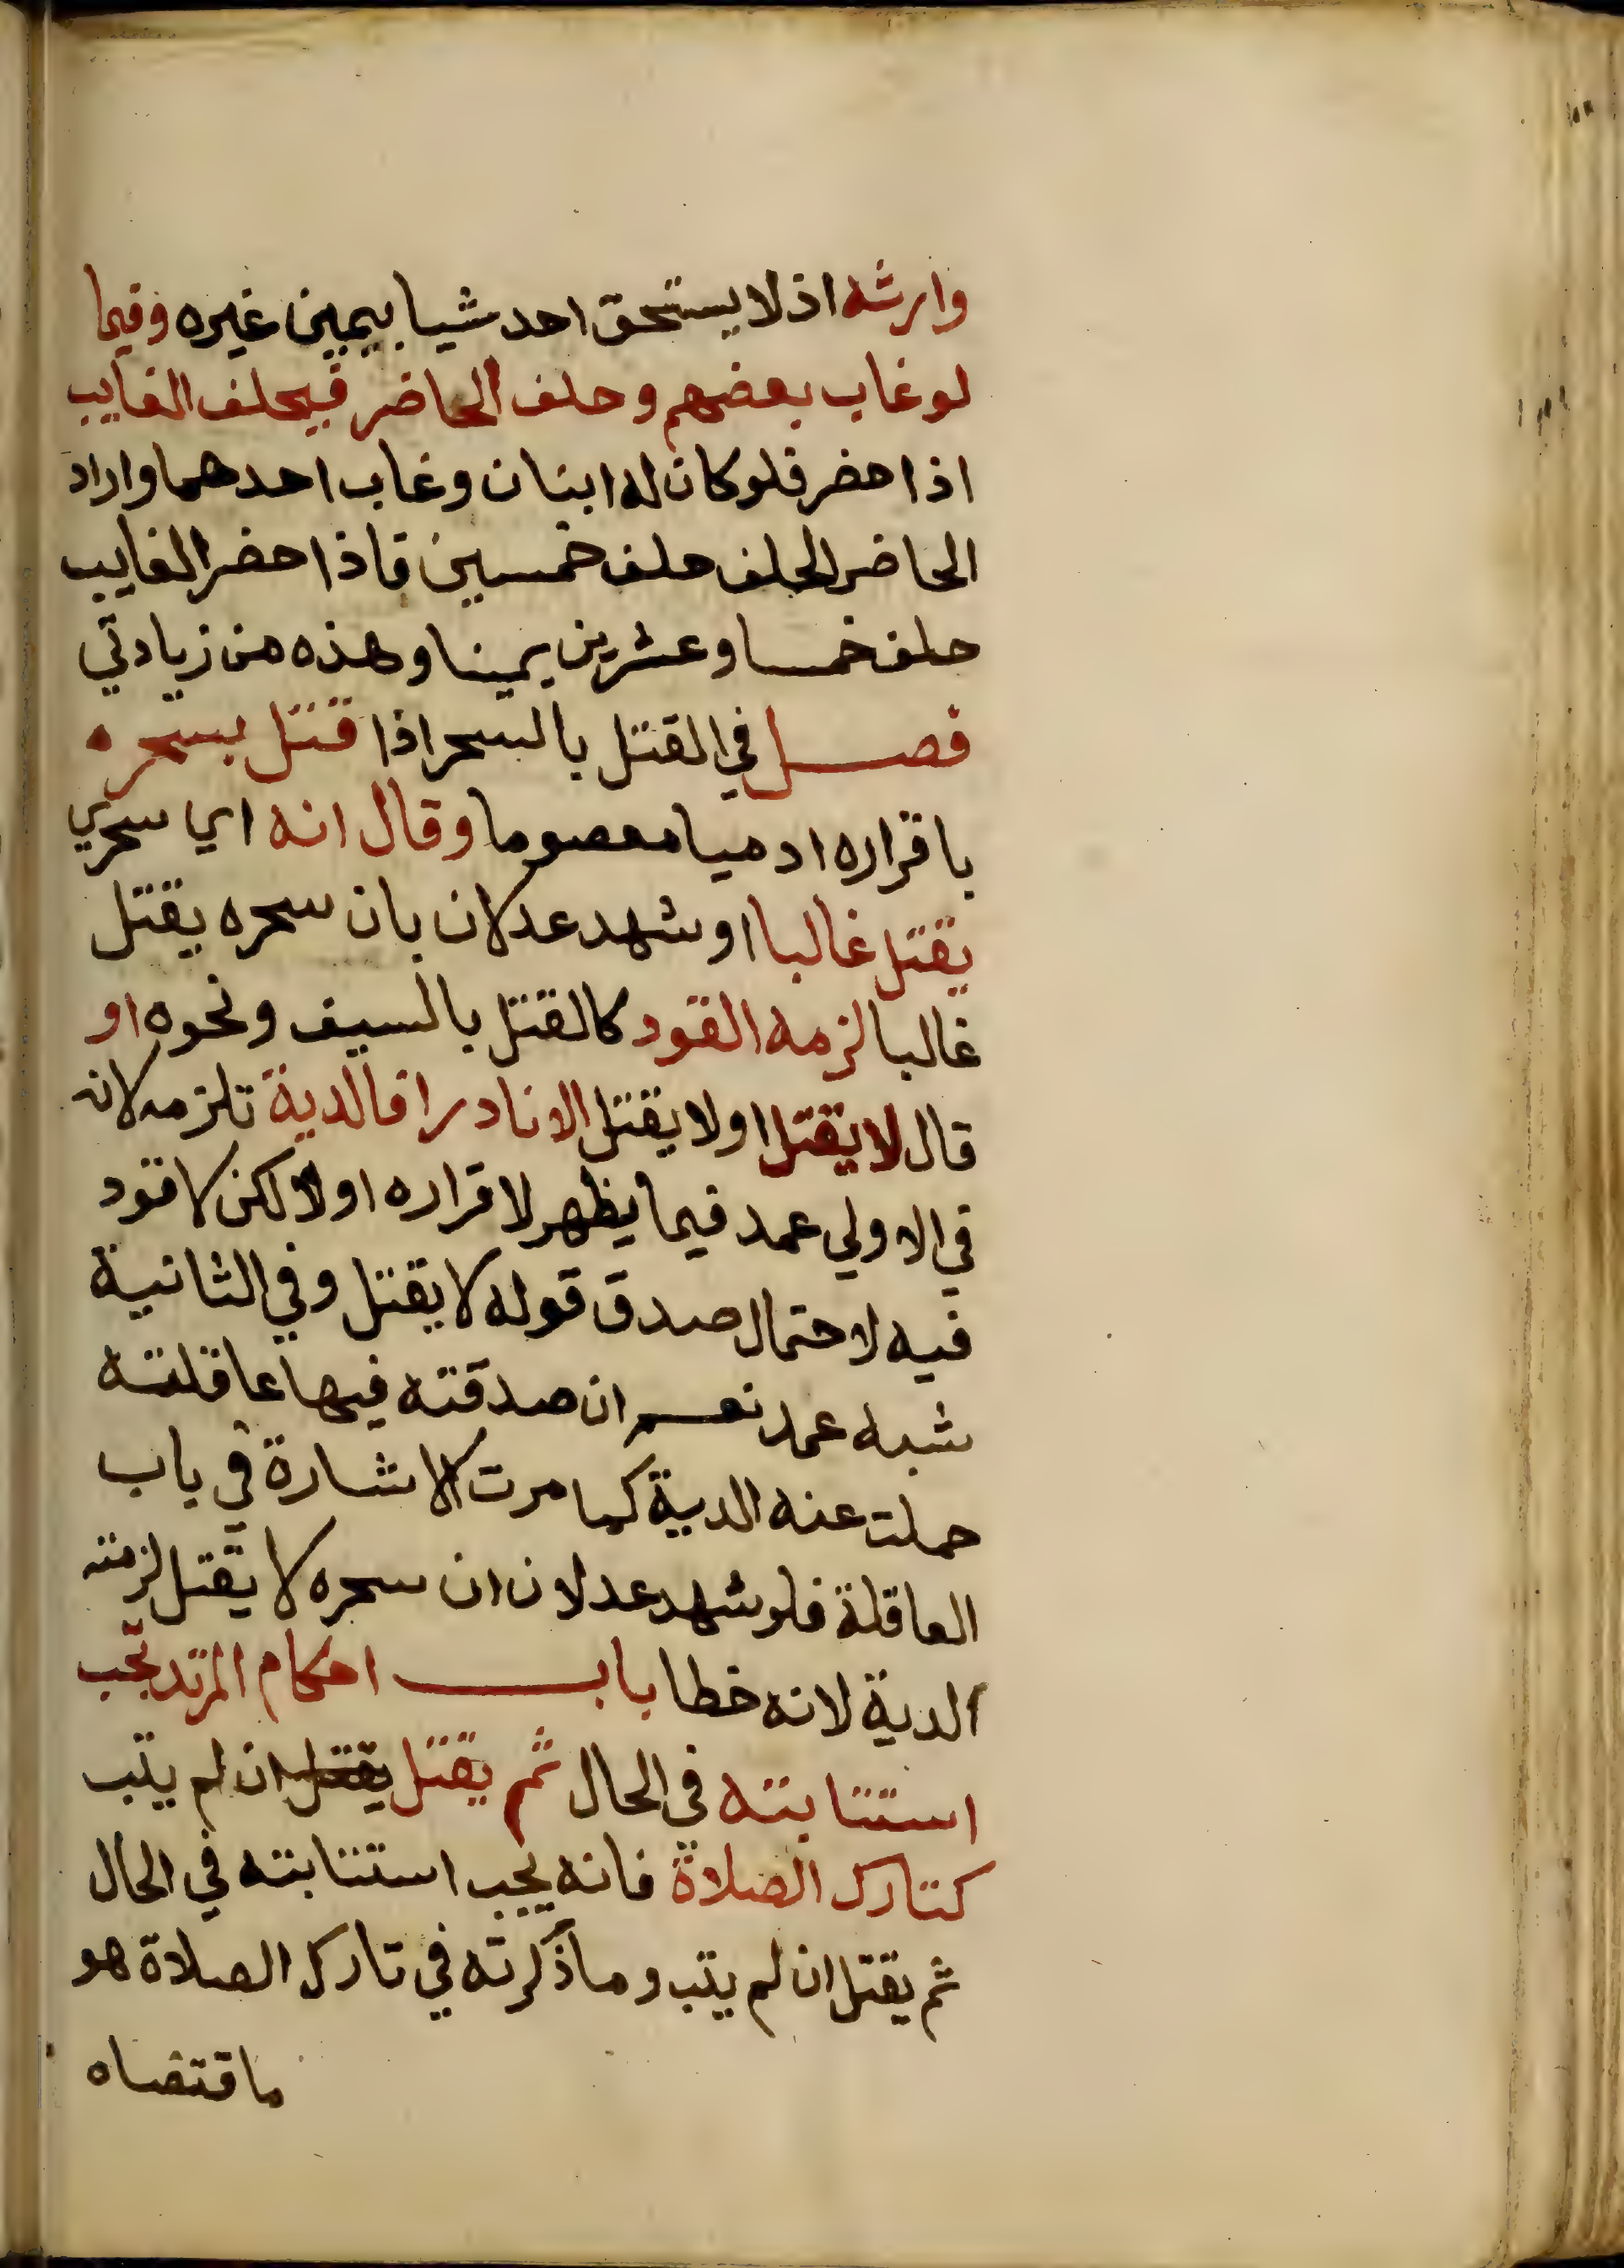 وارثه اذ لا يستحق احد شيا بيمين غيره وفيما
لو غاب بعضهم وحلف الحاضر فيحلف الغايب
اذا حضر فلو كان له ابنان وغاب احدهما واراد
الحاضر الحلف حلف خمسين فاذا حضر الغايب
حلف خمسا وعشرين يمينا وهذه من زيادتي
فصل في القتل بالسحر اذا قتل بسحره
باقراره ادميا معصوما وقال انه اي سحري
يقتل غالبا او شهد عدلان بان سحره يقتل
غالبا لزمه القود كالقتل بالسيف ونحوه او
قال لا يقتل او لا يقتل الا نادرا فالدية تلزمه لانه
في الاولي عمد فيما يظهر لاقراره اولا لكن لا قود
فيه لاحتمال صدق قوله لا يقتل وفي الثانية
شبه عمد نعم ان صدقته فيها عاقلته
حملت عنه الدية كما مرت الاشارة في باب
العاقلة فلو شهد عدلان ان سحره لا يقتل لزمته
الدية لانه خطا باب احكام المرتد تجب
استتابته في الحال ثم يقتل يقتل ان لم يتب
كتارك الصلاة فانه يجب استتابته في الحال
ثم يقتل ان لم يتب وما ذكرته في تارك الصلاة هو
ما قتضاه